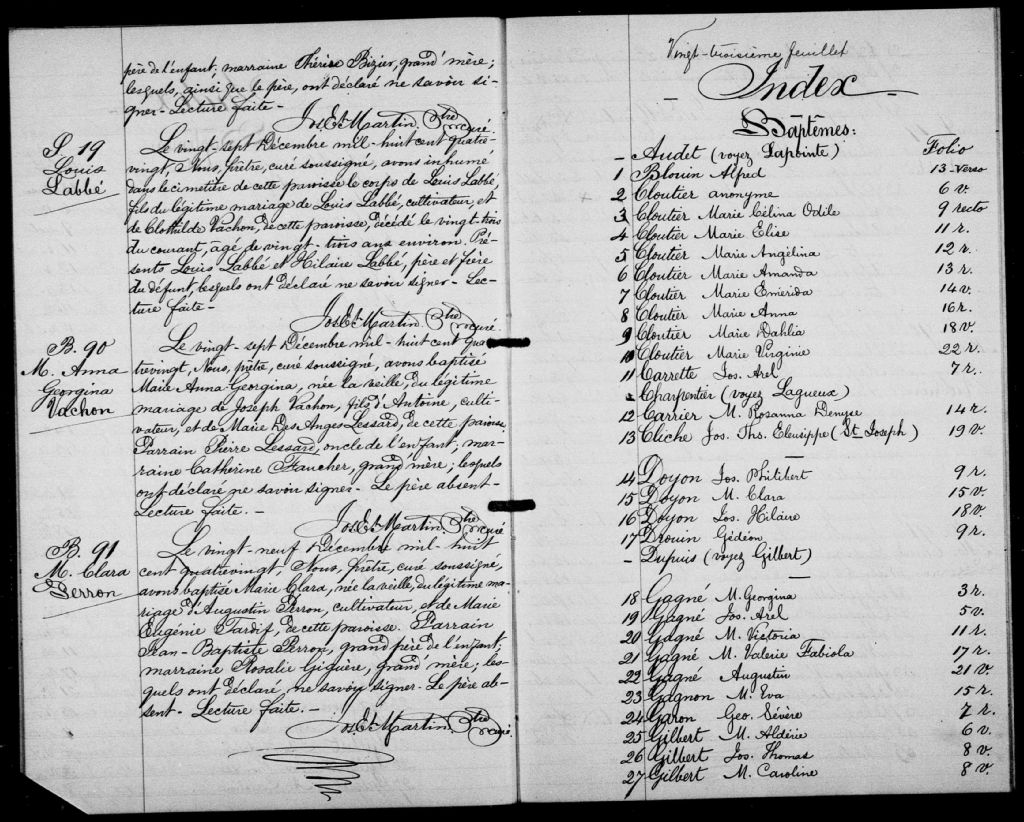 père de l'enfant; marraine Thérèse Bizier, grand'mère;
lesquels, ainsi que le père, ont déclaré ne savoir si-
gner - Lecture faite -
Jos. Et. Martin, Ptre curé.
S. 19
Louis
Labbé
Le vingt-sept Décembre mil-huit cent quatre-
vingt, Nous, prêtre, curé soussigné, avons inhumé
dans le cimetière de cette paroisse le corps de Louis Labbé,
fils du légitime mariage de Louis Labbé, cultivateur, et
de Clothilde Vachon, de cette paroisse, décédé le vingt-trois
du courant, âgé de vingt-trois ans environ. Pré-
sents Louis Labbé et Hilaire Labbé, père et frère
du défunt, lesquels ont déclaré ne savoir signer - Lec-
ture faite -
Jos. Et. Martin, Ptre curé
B. 90
M. Anna
Georgina
Vachon
Le vingt-sept Décembre mil-huit cent qua-
trevingt, Nous, prêtre, curé soussigné, avons baptisé
Marie Anna Georgina, née la veille, du légitime
mariage de Joseph Vachon, fils d'Antoine, culti-
vateur, et de Marie Des Anges Lessard, de cette paroisse
Parrain Pierre Lessard, oncle de l'enfant; mar-
raine Catherine Faucher, grand'mère; lesquels
ont déclaré ne savoir signer - Le père absent -
Lecture faite. -
Jos. Et. Martin, Ptre curé
B. 91
M. Clara
Perron
Le vingt-neuf Décembre mil-huit
cent quatrevingt, Nous, prêtre, curé soussigné,
avons baptisé Marie Clara, née la veille, du légitime ma-
riage d'Augustin Perron, cultivateur, et de Marie
Eugénie Tardif, de cette paroisse. Parrain
Jean-Baptiste Perron, grand'père de l'enfant;
marraine Rosalie Giguère, grand'mère; les-
quels ont déclaré ne savoir signer - Le père ab-
sent - Lecture faite. -
Jos. Et. Martin, Ptre curé.
Vingt-troisième feuillet
- Index -
Baptêmes:
Folio
- Audet (voyez Lapointe)
1 Blouin Alfred 13 verso
2 Cloutier anonyme 6 v.
3 Cloutier Marie Célina Odile 9 recto
4 Cloutier Marie Elise 11 r.
5 Cloutier Marie Angélina 12 r.
6 Cloutier Marie Amanda 13 r.
7 Cloutier Marie Emérida 14 v.
8 Cloutier Marie Anna 16 r.
9 Cloutier Marie Dahlia 18 v.
10 Cloutier Marie Virginie 22 r.
11 Carrette Jos. Arel 7 r.
- Charpentier (voyez Lagueux)
12 Carrier M. Rosanna Denyse 14 r.
13 Cliche Jos. Ths. Eleusippe (St Joseph) 19 v.
14 Doyon Jos. Philibert 9 r.
15 Doyon M. Clara 15 v.
16 Doyon Jos. Hilaire 18 v.
17 Drouin Gédéon 9 r.
- Dupuis (voyez Gilbert)
18 Gagné M. Georgina 3 r.
19 Gagné Jos. Arel 5 v.
20 Gagné M. Victoria 11 r.
21 Gagné M. Valerie Fabiola 17 r.
22 Gagné Augustin 21 v.
23 Gagnon M. Eva 15 r.
24 Garon Geo. Sévère 7 r.
25 Gilbert M. Aldérie 6 v.
26 Gilbert Jos. Thomas 8 v.
27 Gilbert M. Caroline 8 v.